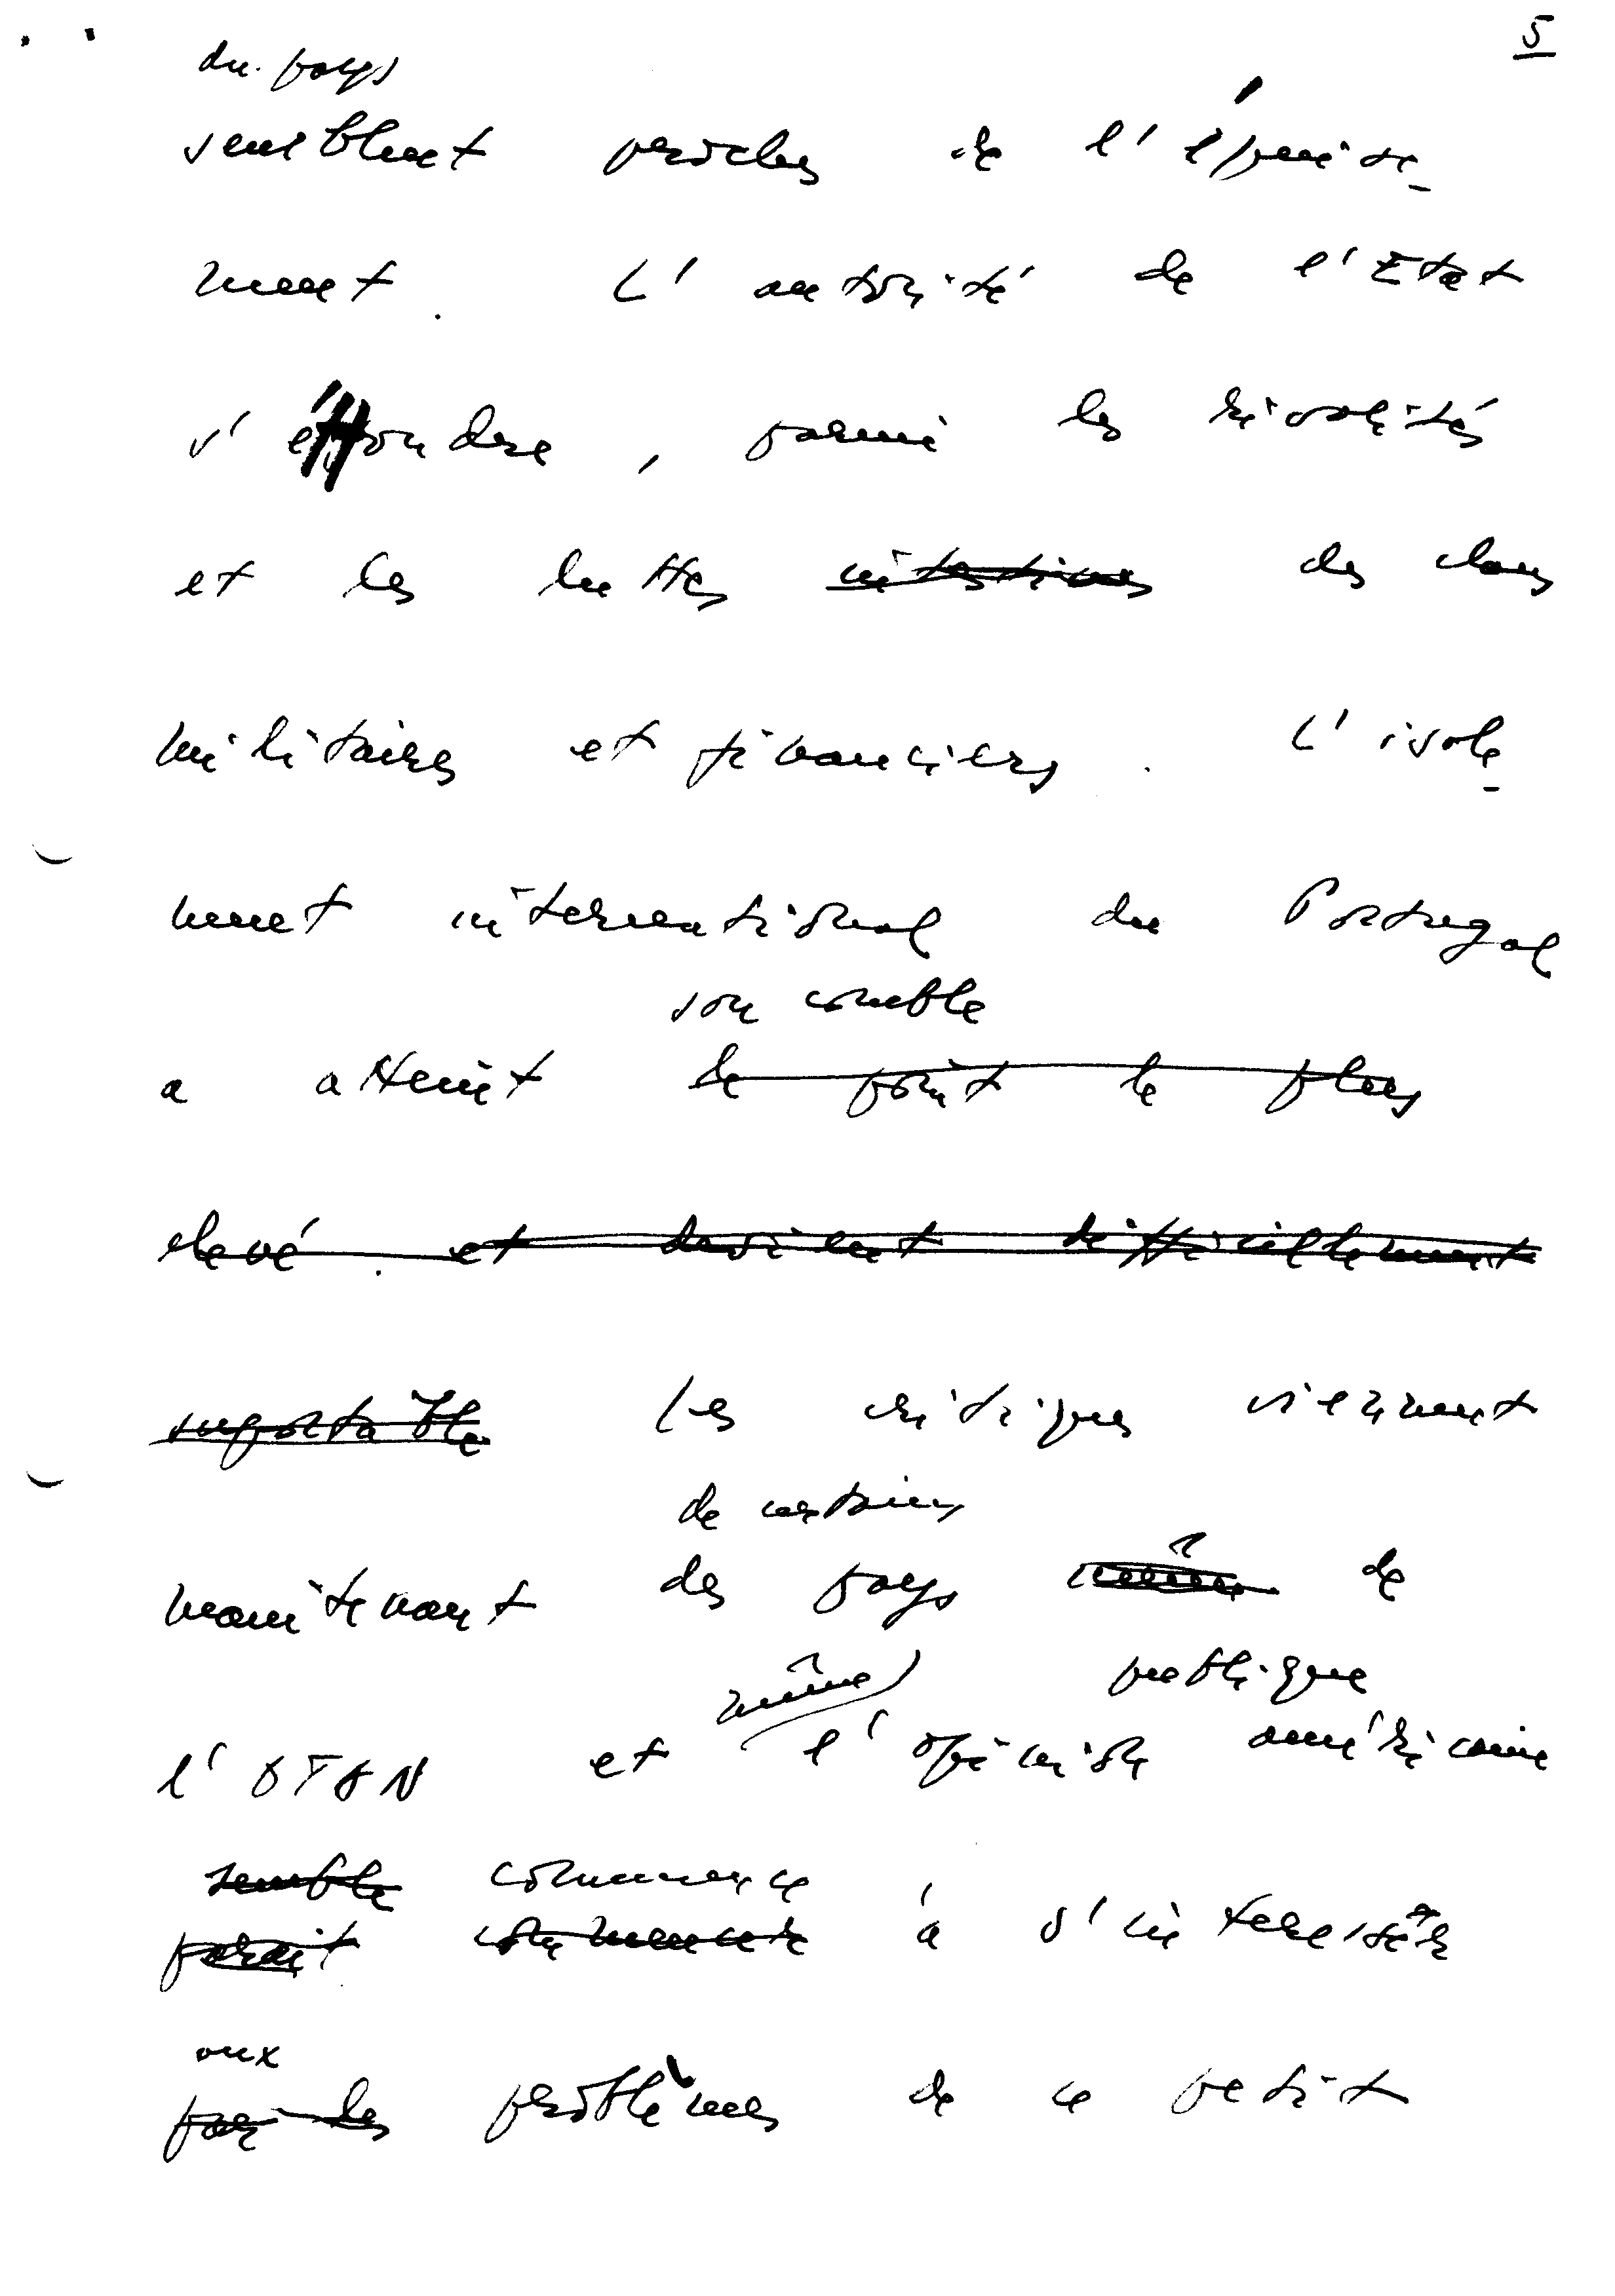 5
du pays
semblent proches de l'épuise-
ment. L'autorité de l'Etat
s'effondre, parmi les rivalités
et les luttes intestines des clans
militaires et financiers. L'isole-
ment international du Portugal
son comble
a atteint le point le plus
elevé. et devient difficillement
suportable Les critiques viennent
de certains
maintenant des pays même de
même publique
l'OTAN et l'opinion américaine
semble commence
parait commencer à s'intéresser
aux
par les problèmes de ce petit